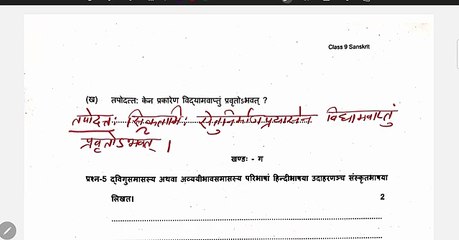 Class 9 Sanskrit
(ख) तपोदत्त: केन प्रकारेण विद्यामवाप्तुं प्रवृतोऽभवत् ?
तपोदत्त: सिकताभि: सेतुनिर्माणप्रयासेन विद्यामवाप्तुं
प्रवृतोऽभवत् ।
खण्डः - ग
प्रश्न-5 द्विगुसमासस्य अथवा अव्ययीभावसमासस्य परिभाषां हिन्दीभाषया उदाहरणञ्च संस्कृतभाषया
लिखत। 2